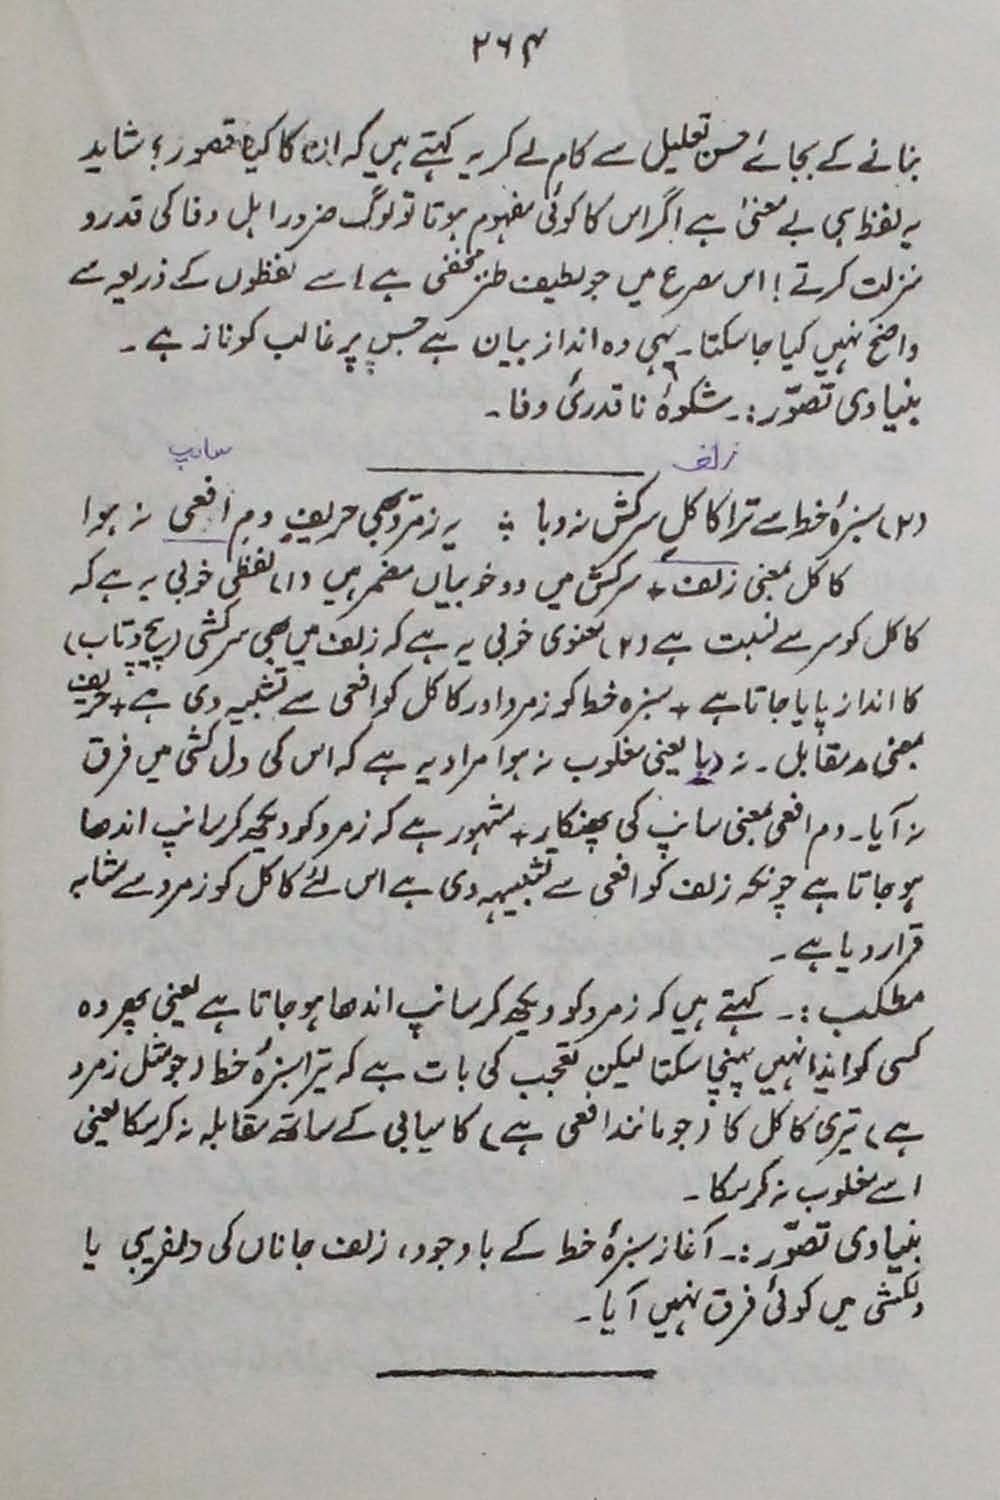 ۲۶۴
بنانے کے بجائے حسن تعلیل سے کام لے کر یہ کہتے ہیں کہ ان کا کیا قصور؟ شاید
یہ لفظ ہی بے معنیٰ ہے اگر اس کا کوئی مفہوم ہوتا تو لوگ ضرور اہل وفا کی قدر و
منزلت کرتے! اس مصرع میں جو لطیف طنز مخفی ہے اسے لفظوں کے ذریعہ سے
واضح نہیں کیا جا سکتا۔ یہی وہ انداز بیان ہے جس پر غالب کو ناز ہے۔
بنیادی تصوّر:۔ شکوۂ ناقدریٔ وفا۔
زلف سانپ
(۲) سبزۂ خط سے ترا کاکلِ سرکش نہ دبا ؞ یہ زمرد بھی حریفِ دمِ افعی نہ ہوا
کاکل بمعنی زلف + سرکش میں دو خوبیاں مضمر ہیں (۱) لفظی خوبی یہ ہے کہ
کاکل کو سر سے نسبت ہے (۲) معنوی خوبی یہ ہے کہ زلف میں بھی سرکشی (پیچ و تاب)
کا انداز پایا جاتا ہے + سبزہ خط کو زمرد اور کاکل کو افعی سے تشبیہ دی ہے + حریف
بمعنی مدمقابل۔ نہ دبا یعنی مغلوب نہ ہوا مراد یہ ہے کہ اس کی دل کشی میں فرق
نہ آیا۔ دم افعی بمعنی سانپ کی پھنکار + مشہور ہے کہ زمرد کو دیکھ کر سانپ اندھا
ہو جاتا ہے چونکہ زلف کو افعی سے تشبیہہ دی ہے اس لئے کاکل کو زمرد سے مشابہ
قرار دیا ہے۔
مطلب:۔ کہتے ہیں کہ زمرد کو دیکھ کر سانپ اندھا ہو جاتا ہے یعنی پھر وہ
کسی کو ایذا نہیں پہنچا سکتا لیکن تعجب کی بات ہے کہ تیرا سبزۂ خط (جو مثل زمرد
ہے) تیری کاکل کا (جو مانند افعی ہے) کامیابی کے ساتھ مقابلہ نہ کر سکا یعنی
اسے مغلوب نہ کر سکا۔
بنیادی تصوّر:۔ آغاز سبزۂ خط کے باوجود، زلف جاناں کی دلفریبی یا
دلکشی میں کوئی فرق نہیں آیا۔